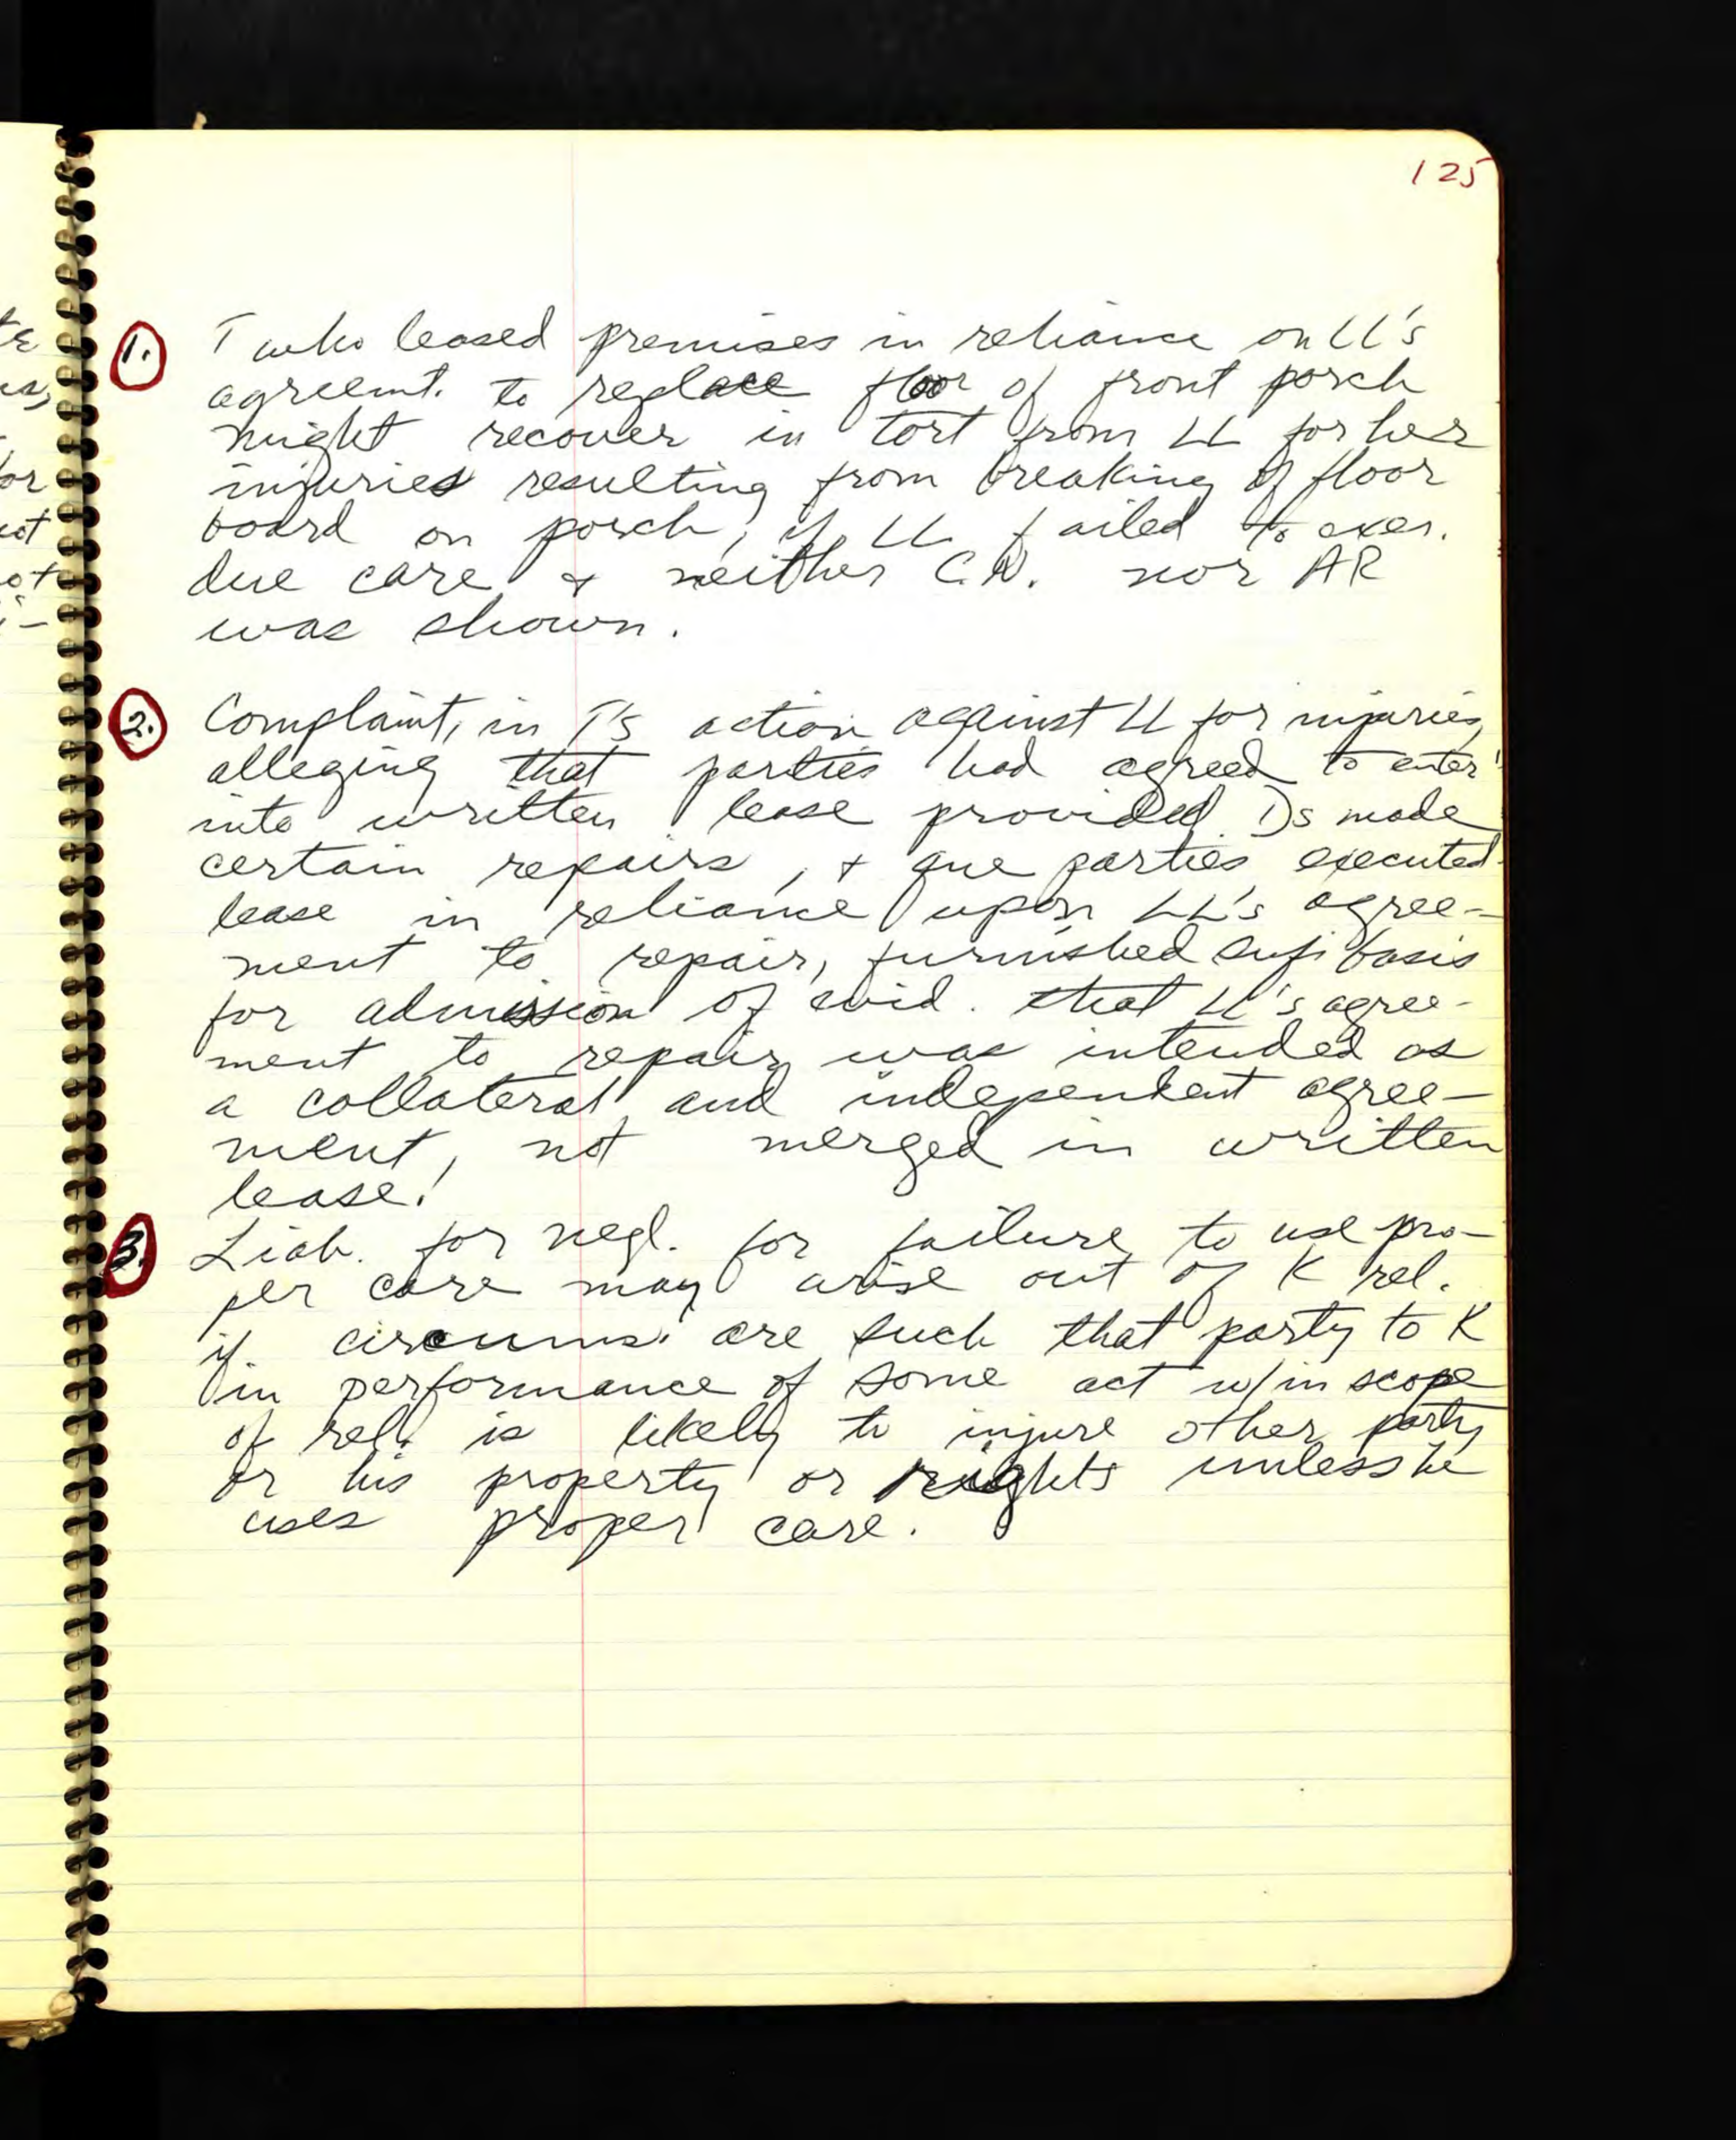 125
1. T who leased premises in reliance on LL's
agreemt. to replace floor of front porch
might recover in tort from LL for her
injuries resulting from breaking of floor
board on porch, if LL failed to exer.
due care & neither C.N. nor AR
was shown.
2. Complaint, in T's action against LL for injuries,
alleging that parties had agreed to enter
into written lease provided Ds made
certain repairs, + parties executed
lease in reliance upon LL's agree-
ment to repair, furnished suf. basis
for admission of evid. that LL's agree-
ment to repair was intended as
a collateral and independent agree-
ment, not merged in written
lease!
3. Liab. for negl. for failure to use pro-
per care may arise out of K rel.
if circums. are such that party to K
in performance of some act w/in scope
of rel. is likely to injure other party
or his property or rights unless he
uses proper care.